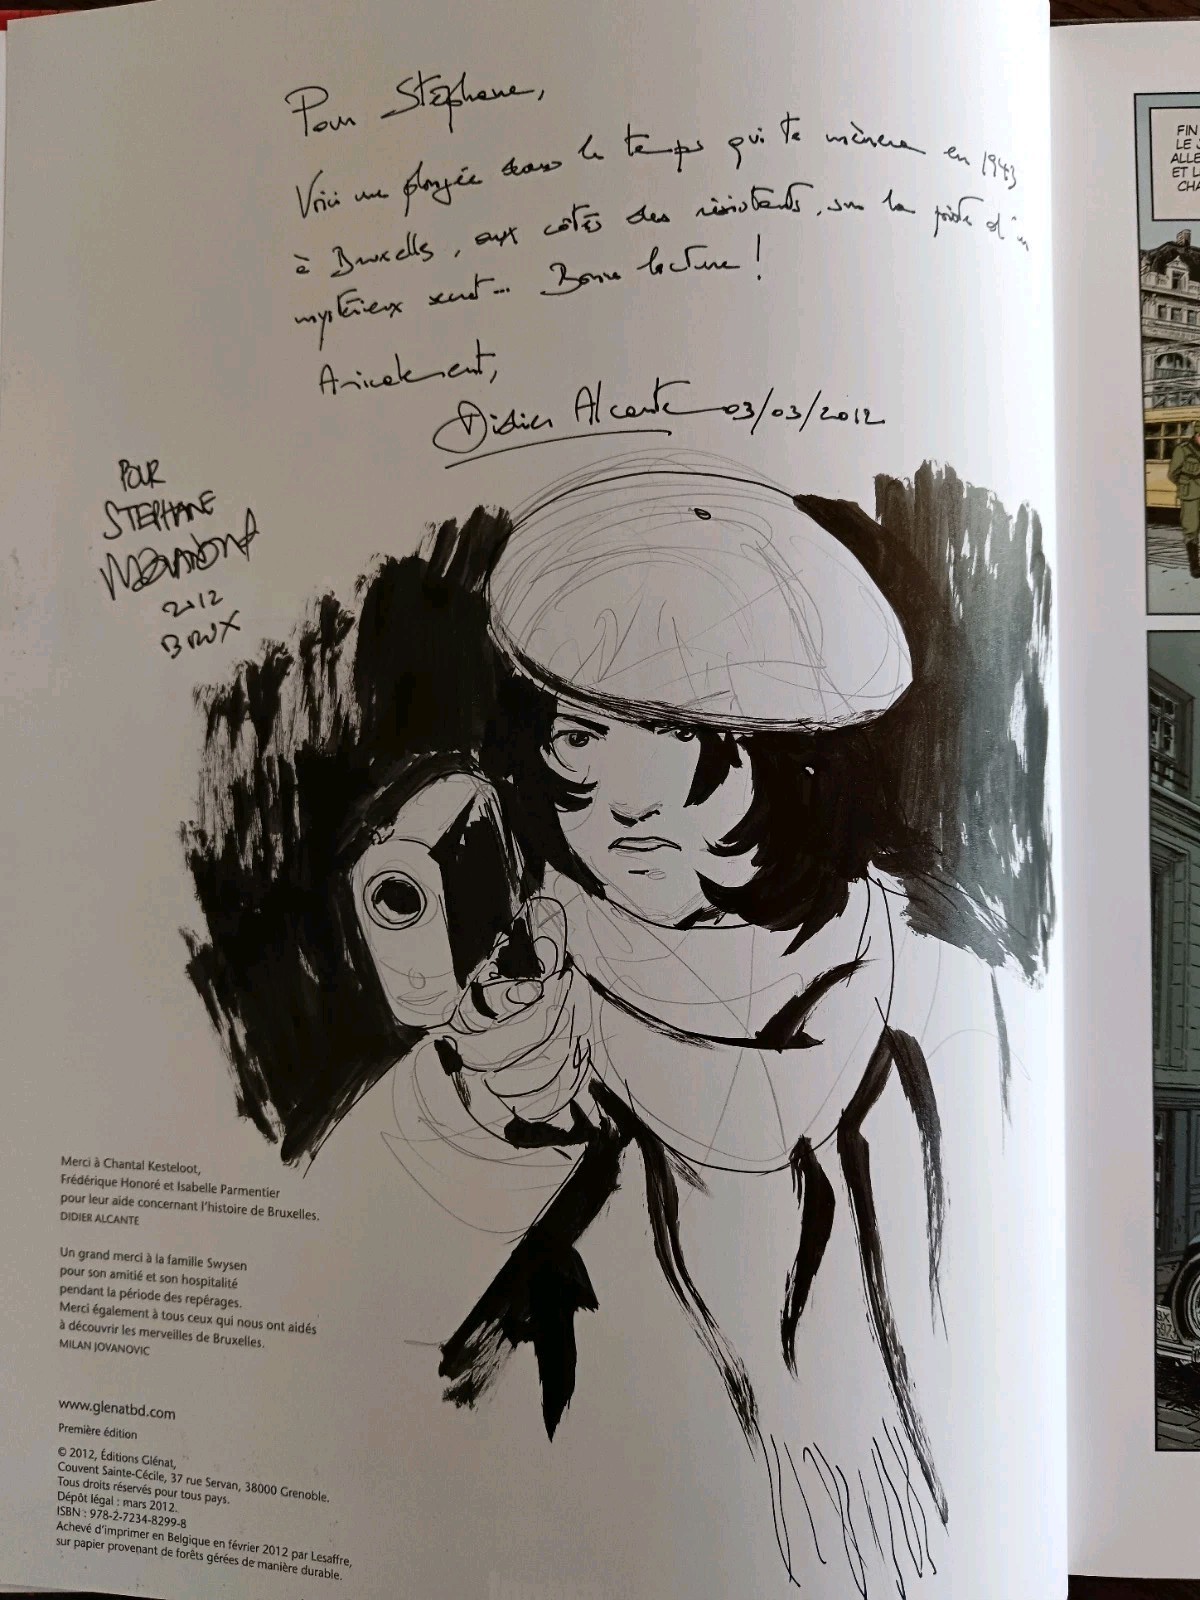 Pour Stéphane,
Voici une plongée dans le temps qui te mènera en 1943
à Bruxelles, aux côtés des résistants, sur la piste d'un
mystérieux secret... Bonne lecture !
Amicalement,
Didier Alcante 03/03/2012
POUR
STEPHANE
2012
BRUX
Merci à Chantal Kesteloot,
Frédérique Honoré et Isabelle Parmentier
pour leur aide concernant l'histoire de Bruxelles.
DIDIER ALCANTE
Un grand merci à la famille Swysen
pour son amitié et son hospitalité
pendant la période des repérages.
Merci également à tous ceux qui nous ont aidés
à découvrir les merveilles de Bruxelles.
MILAN JOVANOVIC
www.glenatbd.com
Première édition
© 2012, Éditions Glénat,
Couvent Sainte-Cécile, 37 rue Servan, 38000 Grenoble.
Tous droits réservés pour tous pays.
Dépôt légal : mars 2012.
ISBN : 978-2-7234-8299-8
Achevé d'imprimer en Belgique en février 2012 par Lesaffre,
sur papier provenant de forêts gérées de manière durable.
FIN
LE J
ALLE
ET L
CHA